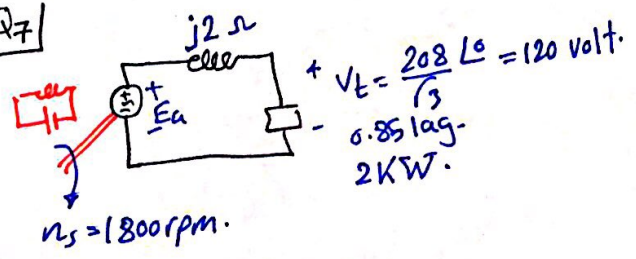 Q7
j2 Ω
+ Vt = 208 ∠0 / √3 = 120 volt.
+
Ea
-
0.85 lag-
2KW.
ns = 1800rpm.